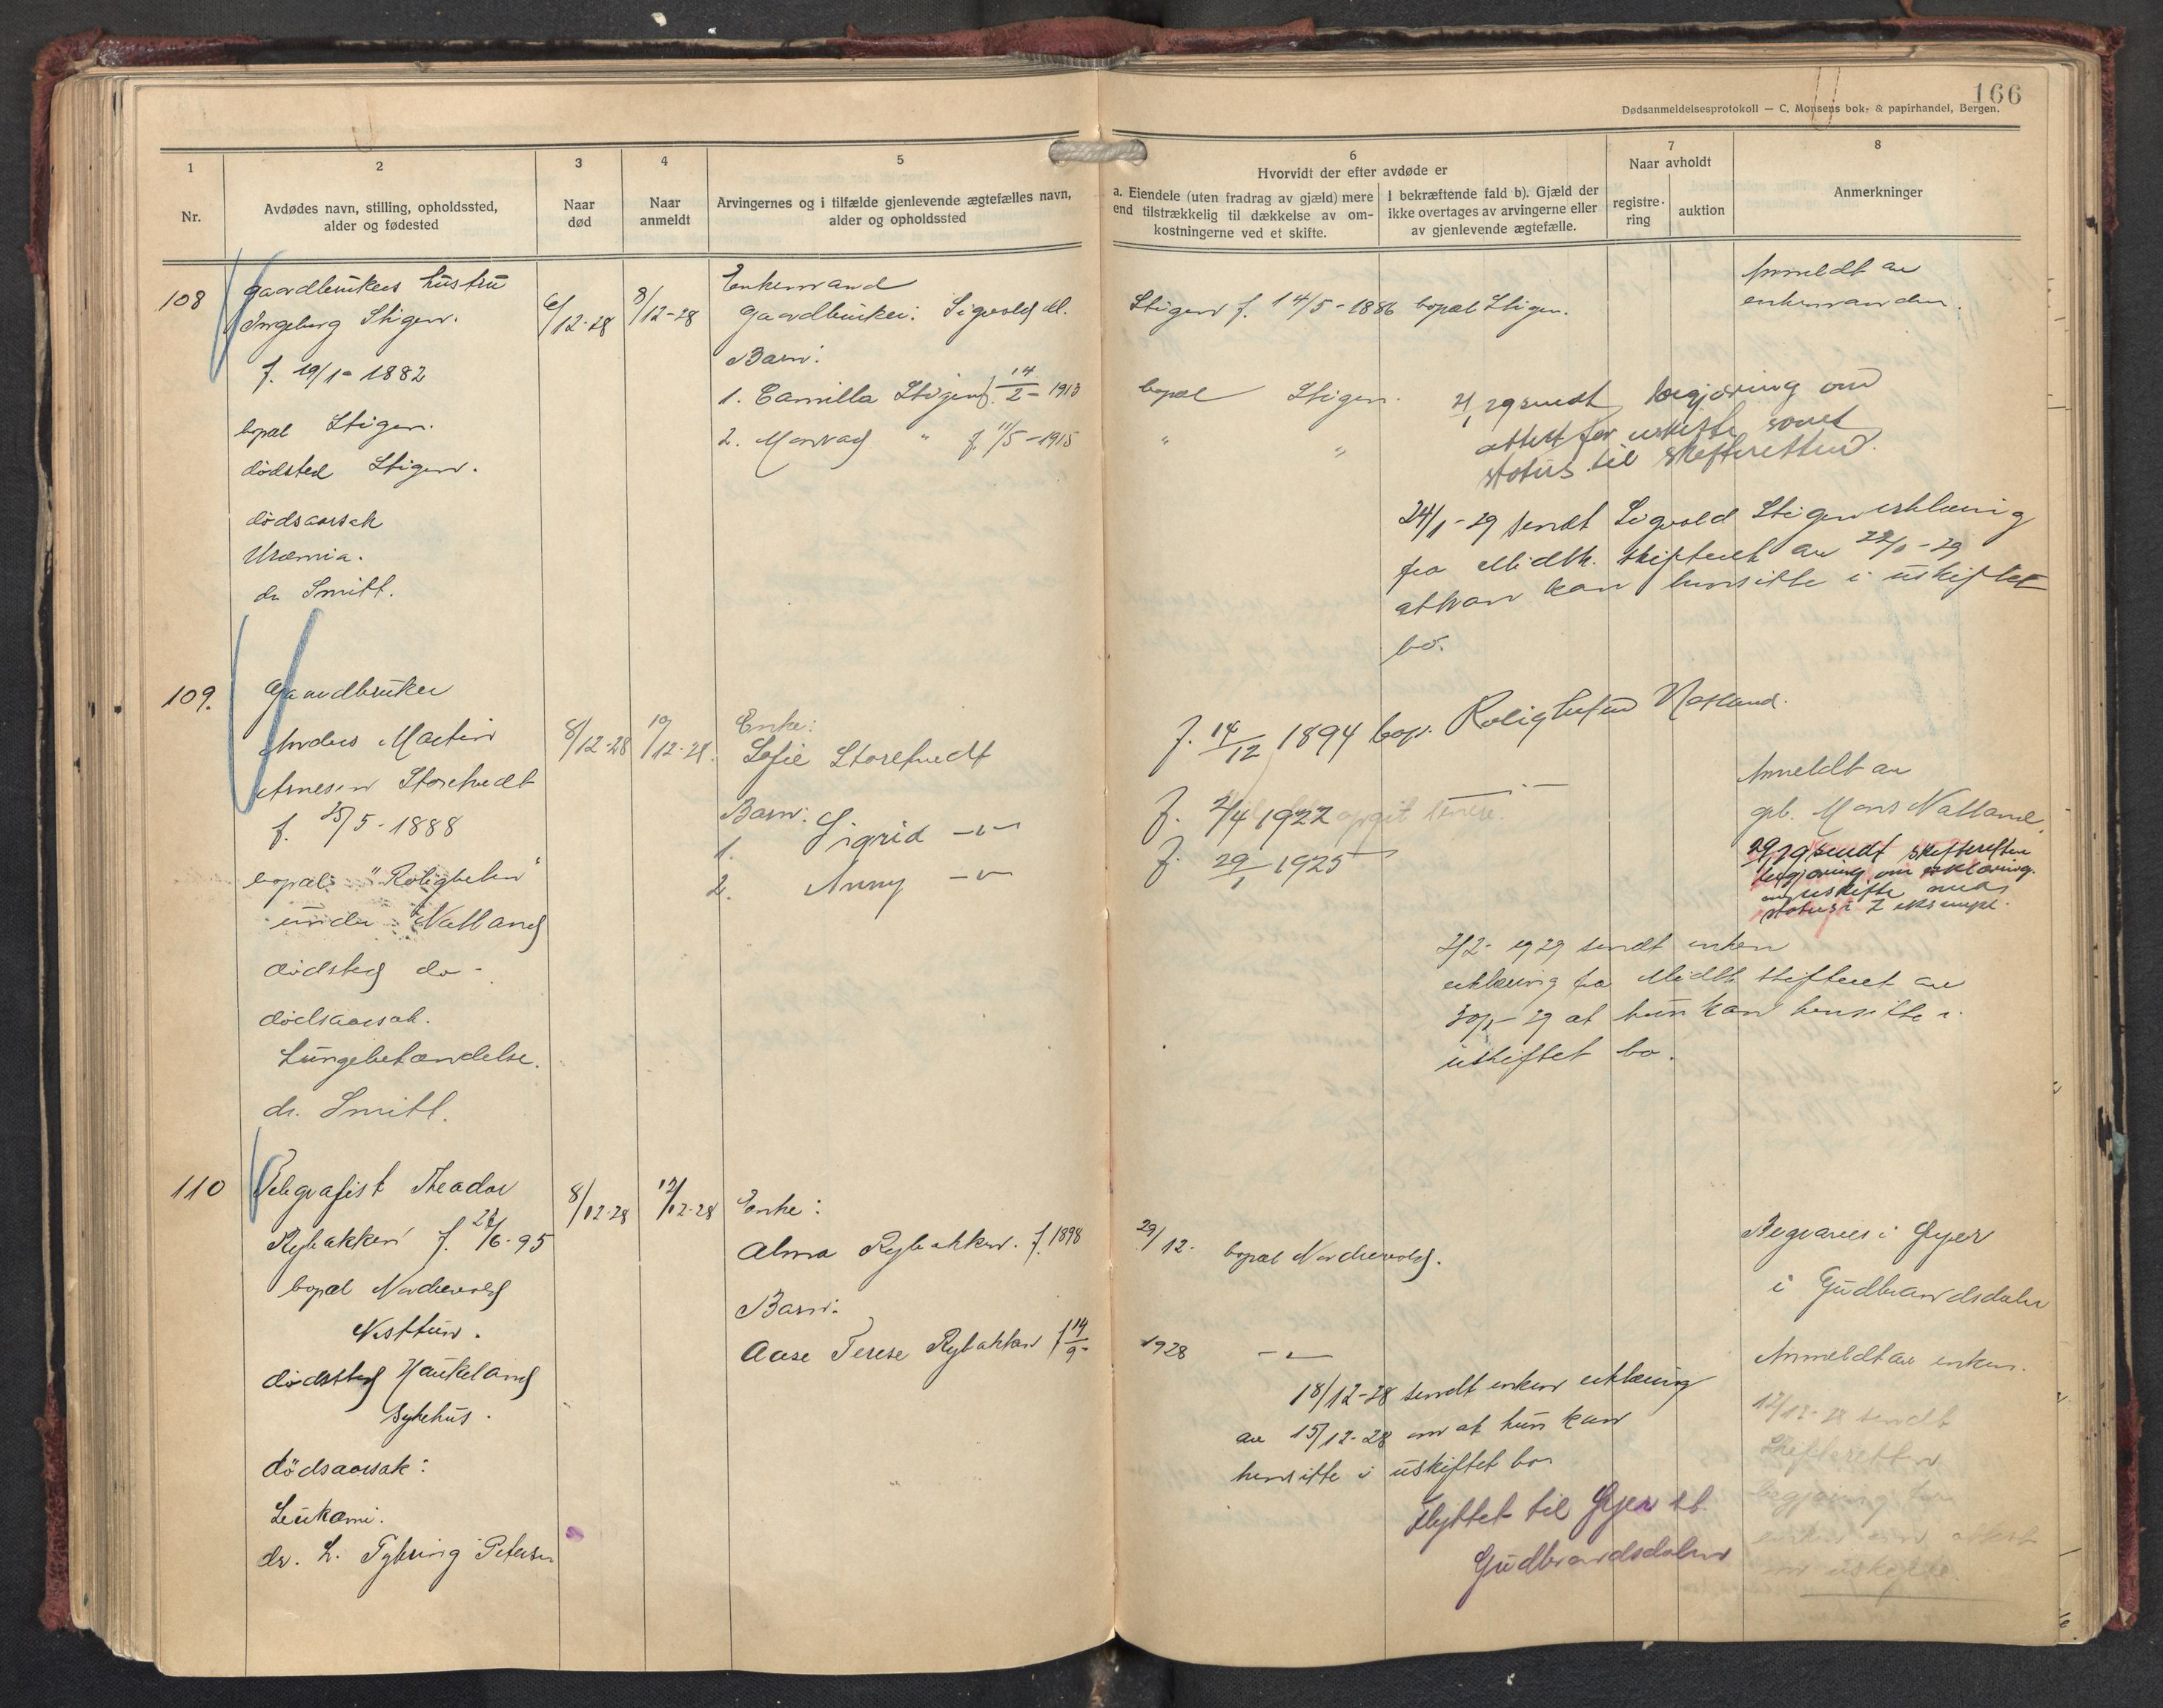 166
Dødsanmeldelsesprotokoll — C. Monsens bok- & papirhandel, Bergen.
1
2
3
4
5
6
7
8
Nr.
Avdødes navn, stilling, opholdssted,
alder og fødested
Naar
død
Naar
anmeldt
Arvingernes og i tilfælde gjenlevende ægtefælles navn,
alder og opholdssted
Hvorvidt der efter avdøde er
a. Eiendele (uten fradrag av gjæld) mere
end tilstrækkelig til dækkelse av om-
kostningerne ved et skifte.
I bekræftende fald b). Gjæld der
ikke overtages av arvingerne eller
av gjenlevende ægtefælle.
Naar avholdt
registre-
ring
auktion
Anmerkninger
108
Gaardbrukers hustru
Ingeborg Stigen.
f. 19/10 1882
bopæl Stigen.
dødsted Stigen.
dødsaarsak
Uræmia.
dr Smitt.
6/12-28
8/12-28
Enkemand
Gaardbruker: Sigvold Al.
Stigen f. 14/5-1886 bopæl Stigen.
Barn:
1. Camilla Stigen f. 14/2-1913
bopæl Stigen.
2. Monrad " f. 11/5-1915
" "
Anmeldt av
enkemanden.
2/1 29 sendt begjæring om
attest for uskifte samt
status til skifteretten.
24/1-29 sendt Sigvold Stigen erklæring
fra Midth. skifteret av 22/1-29
at han kan hensitte i uskiftet
bo.
109.
Gaardbruker
Anders Martin
Arnesen Storetvedt
f. 25/5-1888
bopæl: "Roligheten"
under Natland
dødsted do-
dødsaarsak.
Lungebetændelse.
dr. Smitt.
8/12-28
10/12-28.
Enke:
Sofie Storetvedt
f. 14/12 1894 bop. Roligheten Natland.
Barn:
1. Sigrid -"-
f. 2/4 1922
2. Anny -"-
f. 29/1 1925
Anmeldt av
grb. Mons Natland.
29/1 29 sendt skifteretten
begjæring om erklæring
om uskifte med
status i 2 eksempl.
2/2-1929 sendt enken
erklæring fra Midth. skifteret av
30/1-29 at hun kan hensitte i
uskiftet bo.
110
Telegrafist Theador
Rybakken f. 28/6-95
bopæl Nordrevold
Nesttun.
dødsted Haukeland
Sykehus.
dødsaarsak:
Leukæmi.
dr. L. Tybring Petersen
8/12-28
12/12-28
Enke:
Alma Rybakken. f. 1898
29/12. bopæl Nordrevold.
Barn:
Aase Terese Rybakken f 14/9-
1928 -"-
18/12-28 sendt enken erklæring
av 15/12-28 om at hun kan
hensitte i uskiftet bo
Flyttet til Øyer st.
Gudbrandsdalen
Begraves i Øyer
i Gudbrandsdalen
Anmeldt av enken.
12/12-28 sendt
Skifteretten
begjæring fra
enken om attest
om uskifte.